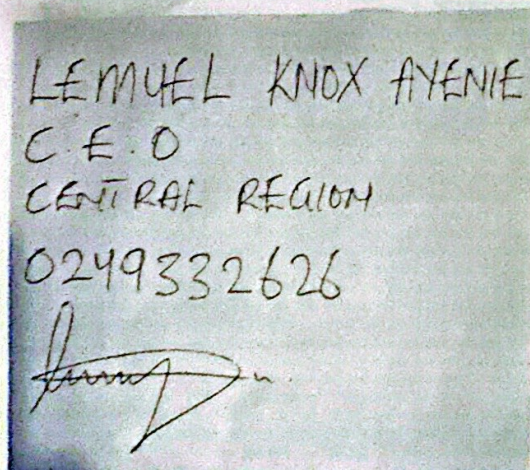 LEMUEL KNOX AYENIE
C.E.O
CENTRAL REGION
0249332626